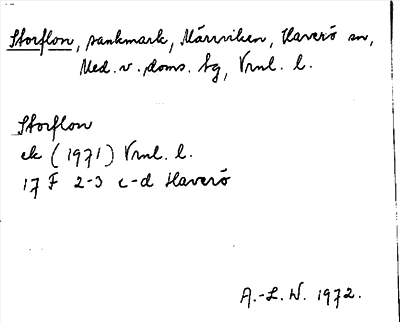 Storflon, sankmark, Männviken, Haverö sn,
Med. v. doms. tg, Vrnl. l.
Storflon
ek (1971) Vrnl. l.
17 F 2-3 c-d Haverö
A.-L. W. 1972.